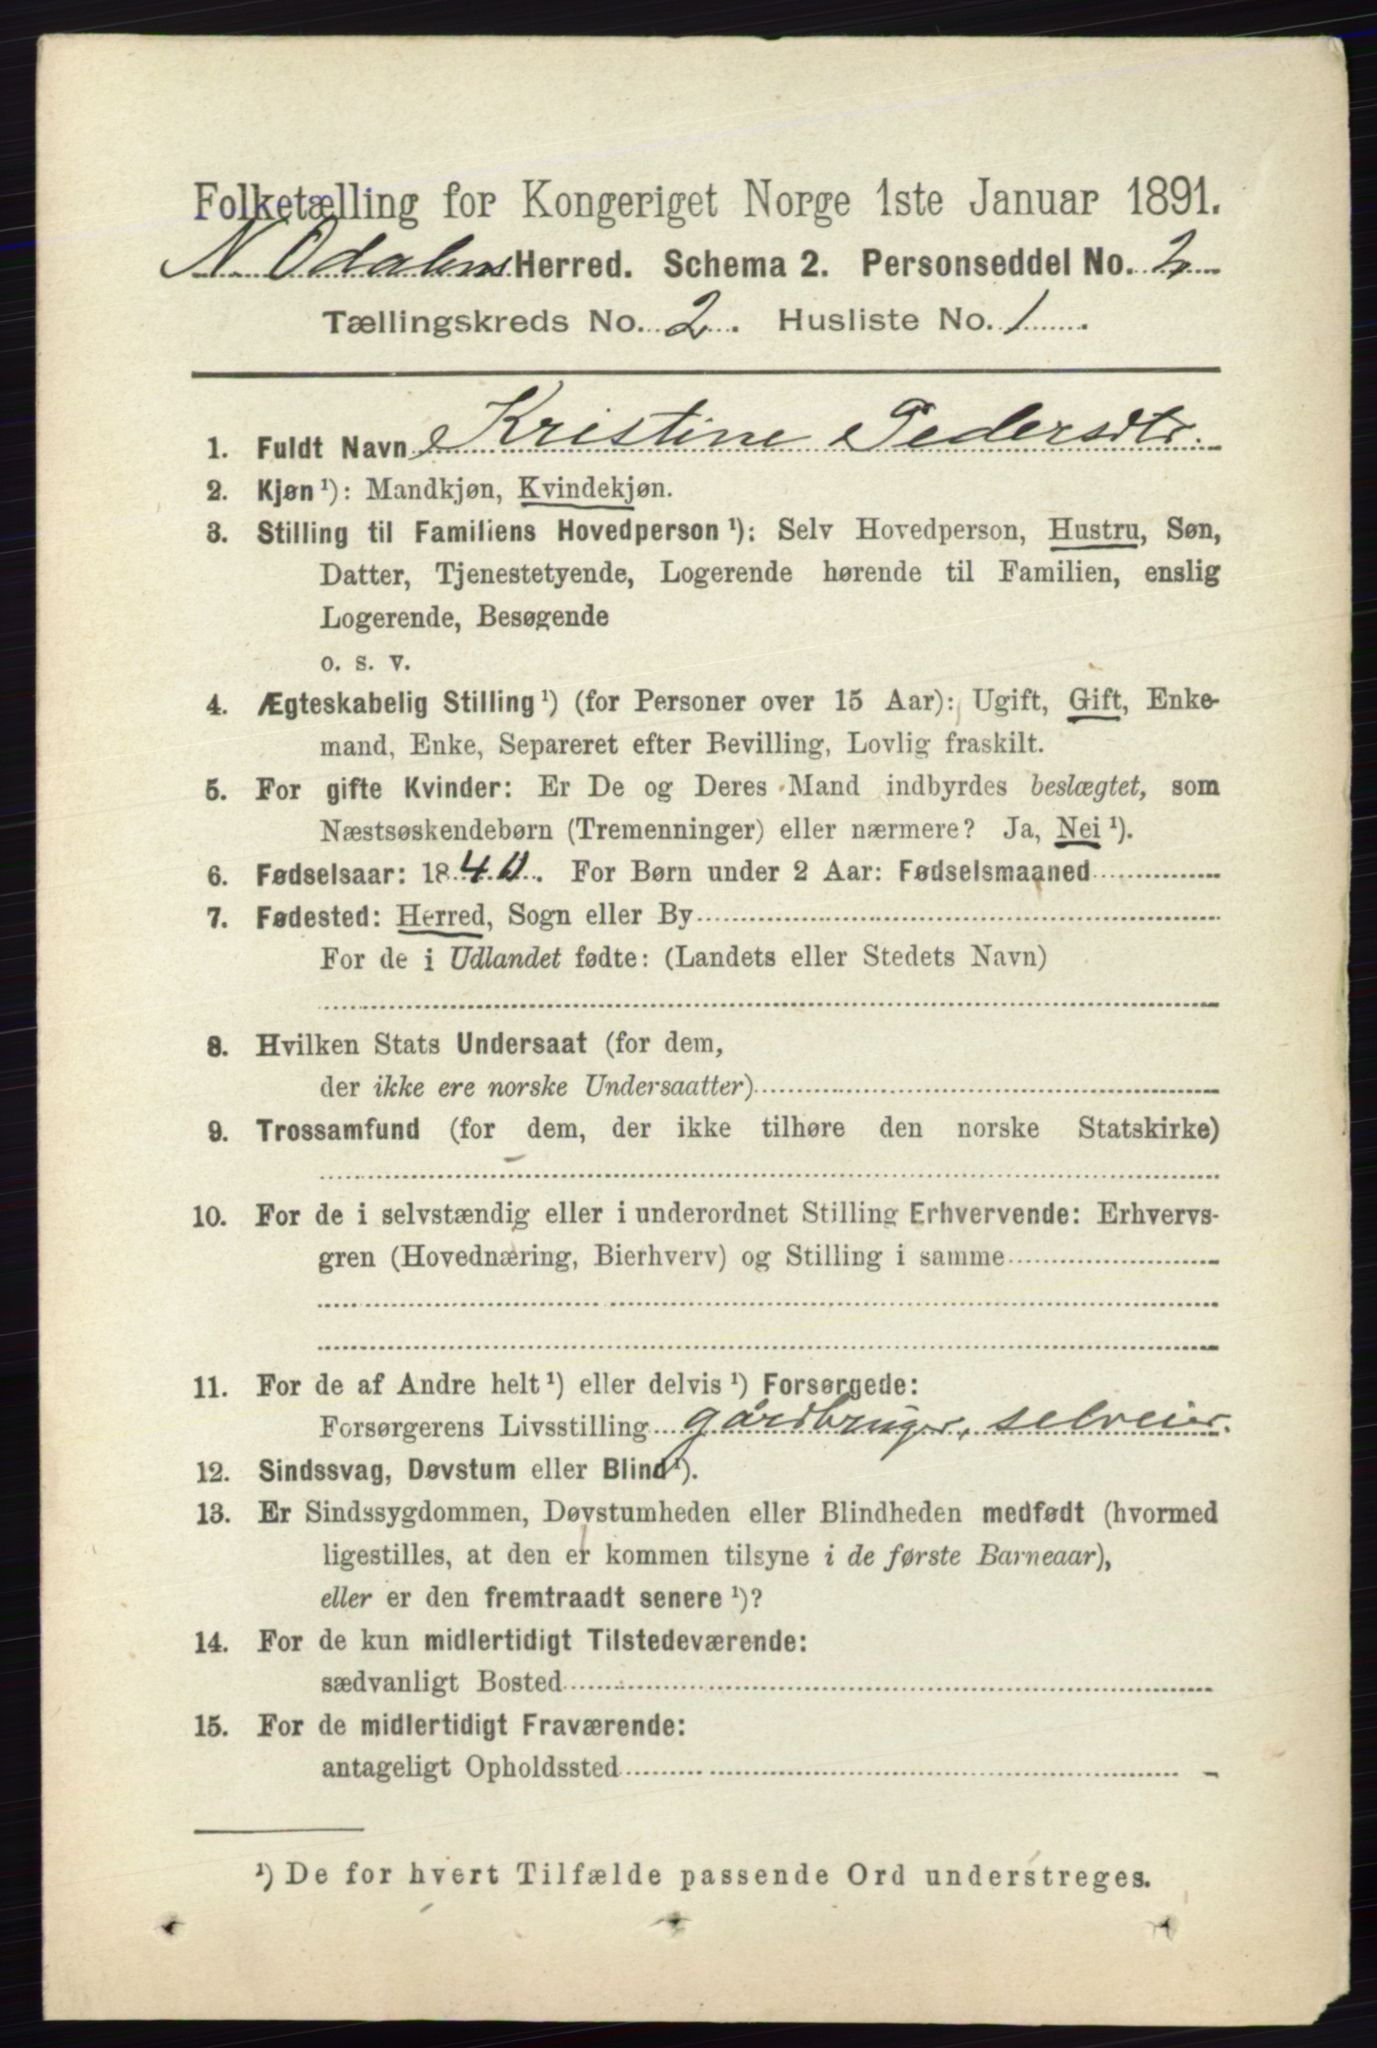 Folketælling for Kongeriget Norge 1ste Januar 1891.
N. Odalens Herred. Schema 2. Personseddel No. 2
Tællingskreds No. 2. Husliste No. 1.
1. Fuldt Navn Kristine Pedersdtr.
2. Kjøn ¹): Mandkjøn, Kvindekjøn.
3. Stilling til Familiens Hovedperson ¹): Selv Hovedperson, Hustru, Søn,
Datter, Tjenestetyende, Logerende hørende til Familien, enslig
Logerende, Besøgende
o. s. v.
4. Ægteskabelig Stilling ¹) (for Personer over 15 Aar): Ugift, Gift, Enke-
mand, Enke, Separeret efter Bevilling, Lovlig fraskilt.
5. For gifte Kvinder: Er De og Deres Mand indbyrdes beslægtet, som
Næstsøskendebørn (Tremenninger) eller nærmere? Ja, Nei ¹).
6. Fødselsaar: 1840. For Børn under 2 Aar: Fødselsmaaned
7. Fødested: Herred, Sogn eller By
For de i Udlandet fødte: (Landets eller Stedets Navn)
8. Hvilken Stats Undersaat (for dem,
der ikke ere norske Undersaatter)
9. Trossamfund (for dem, der ikke tilhøre den norske Statskirke)
10. For de i selvstændig eller i underordnet Stilling Erhvervende: Erhvervs-
gren (Hovednæring, Bierhverv) og Stilling i samme
11. For de af Andre helt ¹) eller delvis ¹) Forsørgede:
Forsørgerens Livsstilling gårdbruger, selveier.
12. Sindssvag, Døvstum eller Blind ¹).
13. Er Sindssygdommen, Døvstumheden eller Blindheden medfødt (hvormed
ligestilles, at den er kommen tilsyne i de første Barneaar),
eller er den fremtraadt senere ¹)?
14. For de kun midlertidigt Tilstedeværende:
sædvanligt Bosted
15. For de midlertidigt Fraværende:
antageligt Opholdssted
¹) De for hvert Tilfælde passende Ord understreges.